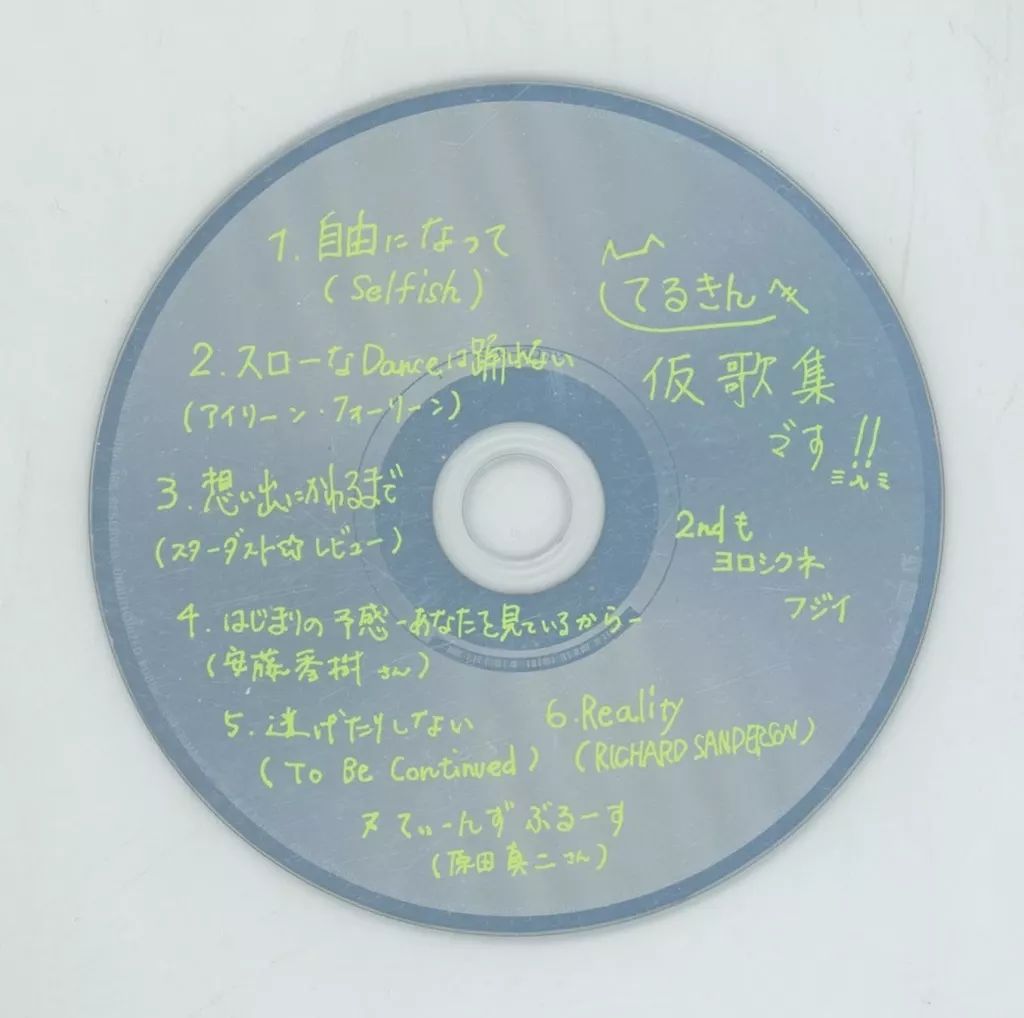 1. 自由になって
(Selfish)
2. スローなDanceは踊れない
(アイリーン・フォーリーン)
3. 想い出にかわるまで
(スターダスト☆レビュー)
4. はじまりの予感-あなたを見ているから-
(安藤秀樹さん)
5. 逃げたりしない
(To Be Continued)
6. Reality
(RICHARD SANDERSON)
7 てぃーんずぶるーす
(原田真二さん)
てるきんへ
仮歌集
です!!
2ndも
ヨロシクネ
フジイ